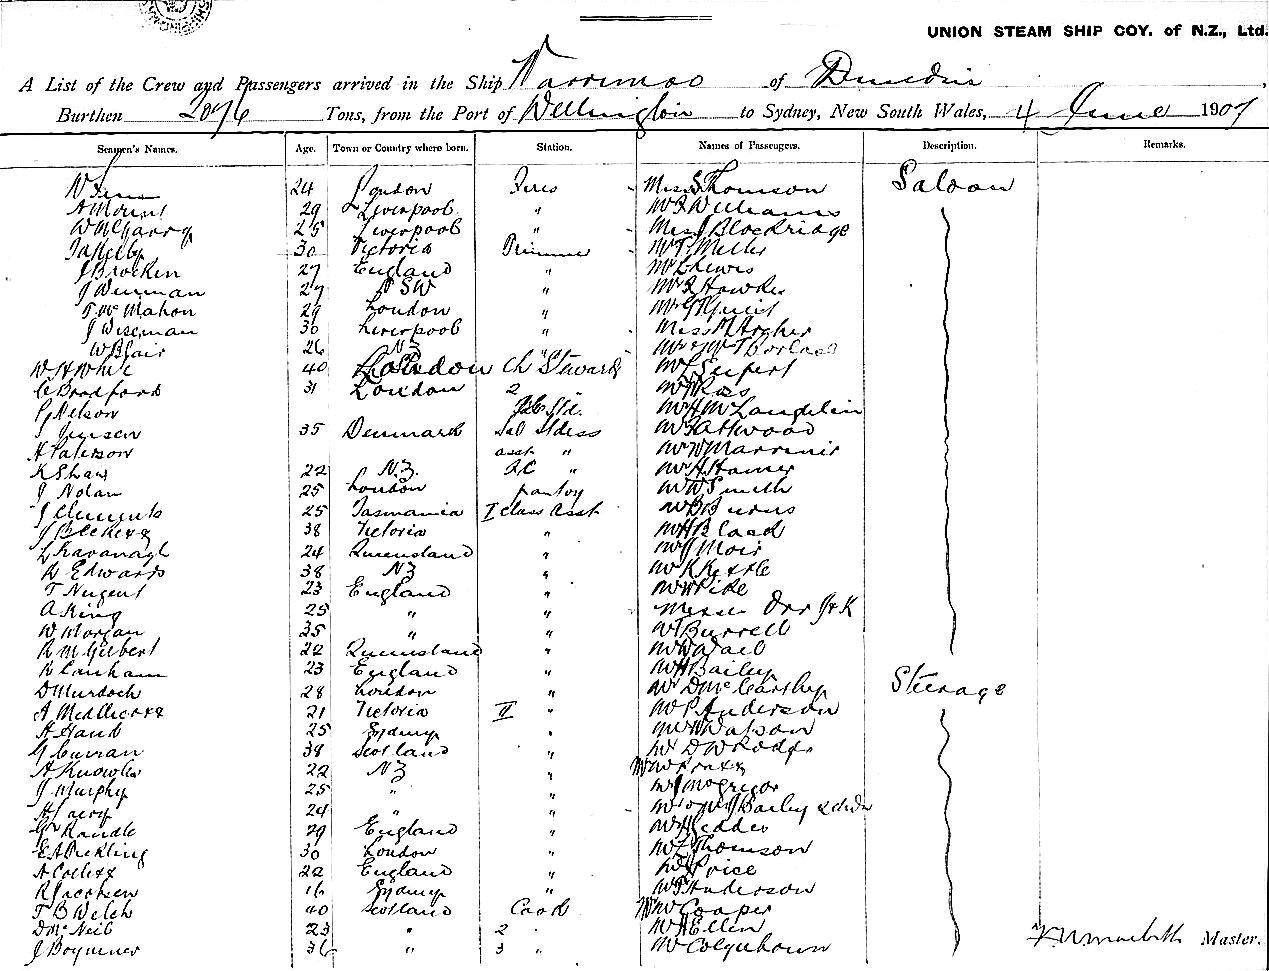 UNION STEAM SHIP COY. of N.Z., Ltd.
A List of the Crew and Passengers arrived in the Ship Warrimoo of Dunedin,
Burthen 2076 Tons, from the Port of Wellington to Sydney, New South Wales, 4 June 1907
Seamen's Names. Age. Town or Country where born. Station. Names of Passengers. Description. Remarks.
24 London Fires Miss Thomson Saloon
A Mount 29 Liverpool " Mr Williams
W McGarry 25 Liverpool " Miss J Blockridge
30 Victoria Trimmer Mr T Miller
J Brocken 27 England " Mr Lewis
J Wenman 27 NSW " Mr Hawkes
T. McMahon 29 London "
J Wiseman 30 Liverpool " Miss M Archer
W Blair 26 NZ "
W H White 40 London Ch Steward Mr Seifert
C Bradford 31 London 2 " Mr Ross
P Nelson Std. Mr H McLaughlin
J Jensen 35 Denmark Sal Stdess Mr Attwood
H Paterson asst "
K Shaw 22 N.Z. "
J Nolan 25 London pantry Mr W Smith
J Clements 25 Tasmania I class asst Mr B Burns
38 Victoria "
L Kavanagh 24 Queensland " Mr J Moir
W Edwards 38 NZ "
T Nugent 23 England " Mr W Pike
A King 25 " " Orr J & K
W Morgan 35 " " Mr T Burrell
R McGilbert 22 Queensland "
R Lanham 23 England " Mr H Bailey
D Murdoch 28 London " Mr D McCarthy Steerage
21 Victoria II " Mr P Anderson
H Hand 25 Sydney " Mr W Watson
G Curran 38 Scotland "
A Knowles 22 NZ "
J Murphy 25 " " Mr J McGregor
24 " " Bailey & chdn
G Randle 29 England "
E A Pickling 30 London " Mr L Thomson
A Collett 22 England " Mr Price
R Jacobsen 16 Sydney " Mr T Anderson
T B Welch 40 Scotland Cook Mr Cooper
D McNeil 23 " 2 " Mr H Ellen
J 36 " 3 " Mr Colquhoun
Master.